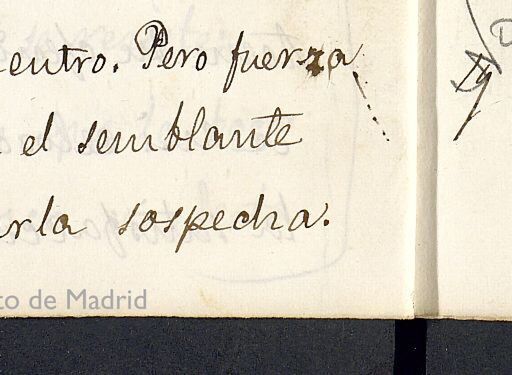 entro. Pero fuerza
el semblante
rla sospecha.
to de Madrid